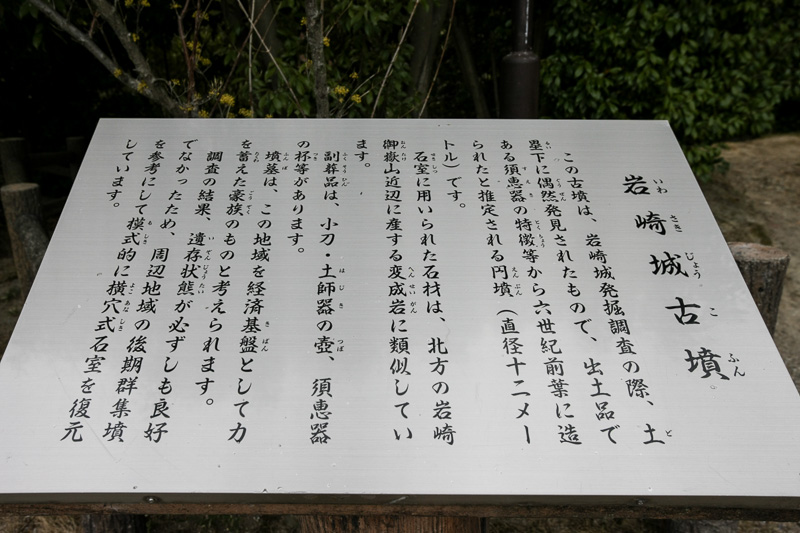 岩崎城古墳
この古墳は、岩崎城発掘調査の際、土
塁下に偶然発見されたもので、出土品で
ある須恵器の特徴等から六世紀前葉に造
られたと推定される円墳(直径十二メー
トル)です。
石室に用いられた石材は、北方の岩崎
御嶽山近辺に産する変成岩に類似してい
ます。
副葬品は、小刀・土師器の壺、須恵器
の坏等があります。
墳墓は、この地域を経済基盤として力
を蓄えた豪族のものと考えられます。
調査の結果、遺存状態が必ずしも良好
でなかったため、周辺地域の後期群集墳
を参考にして模式的に横穴式石室を復元
しています。